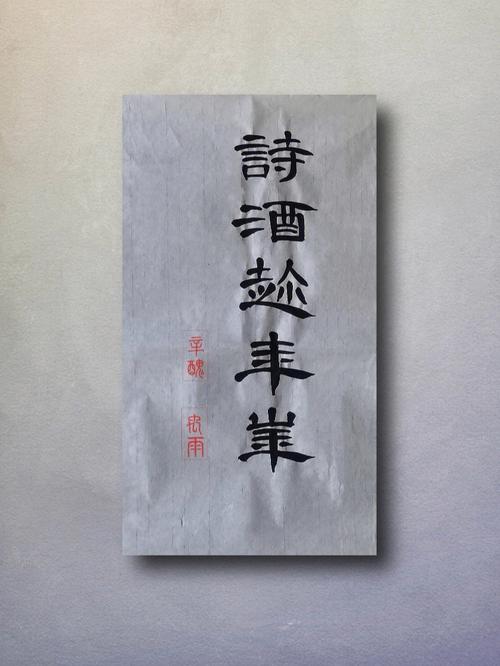 詩酒趂年華
辛醜
雨